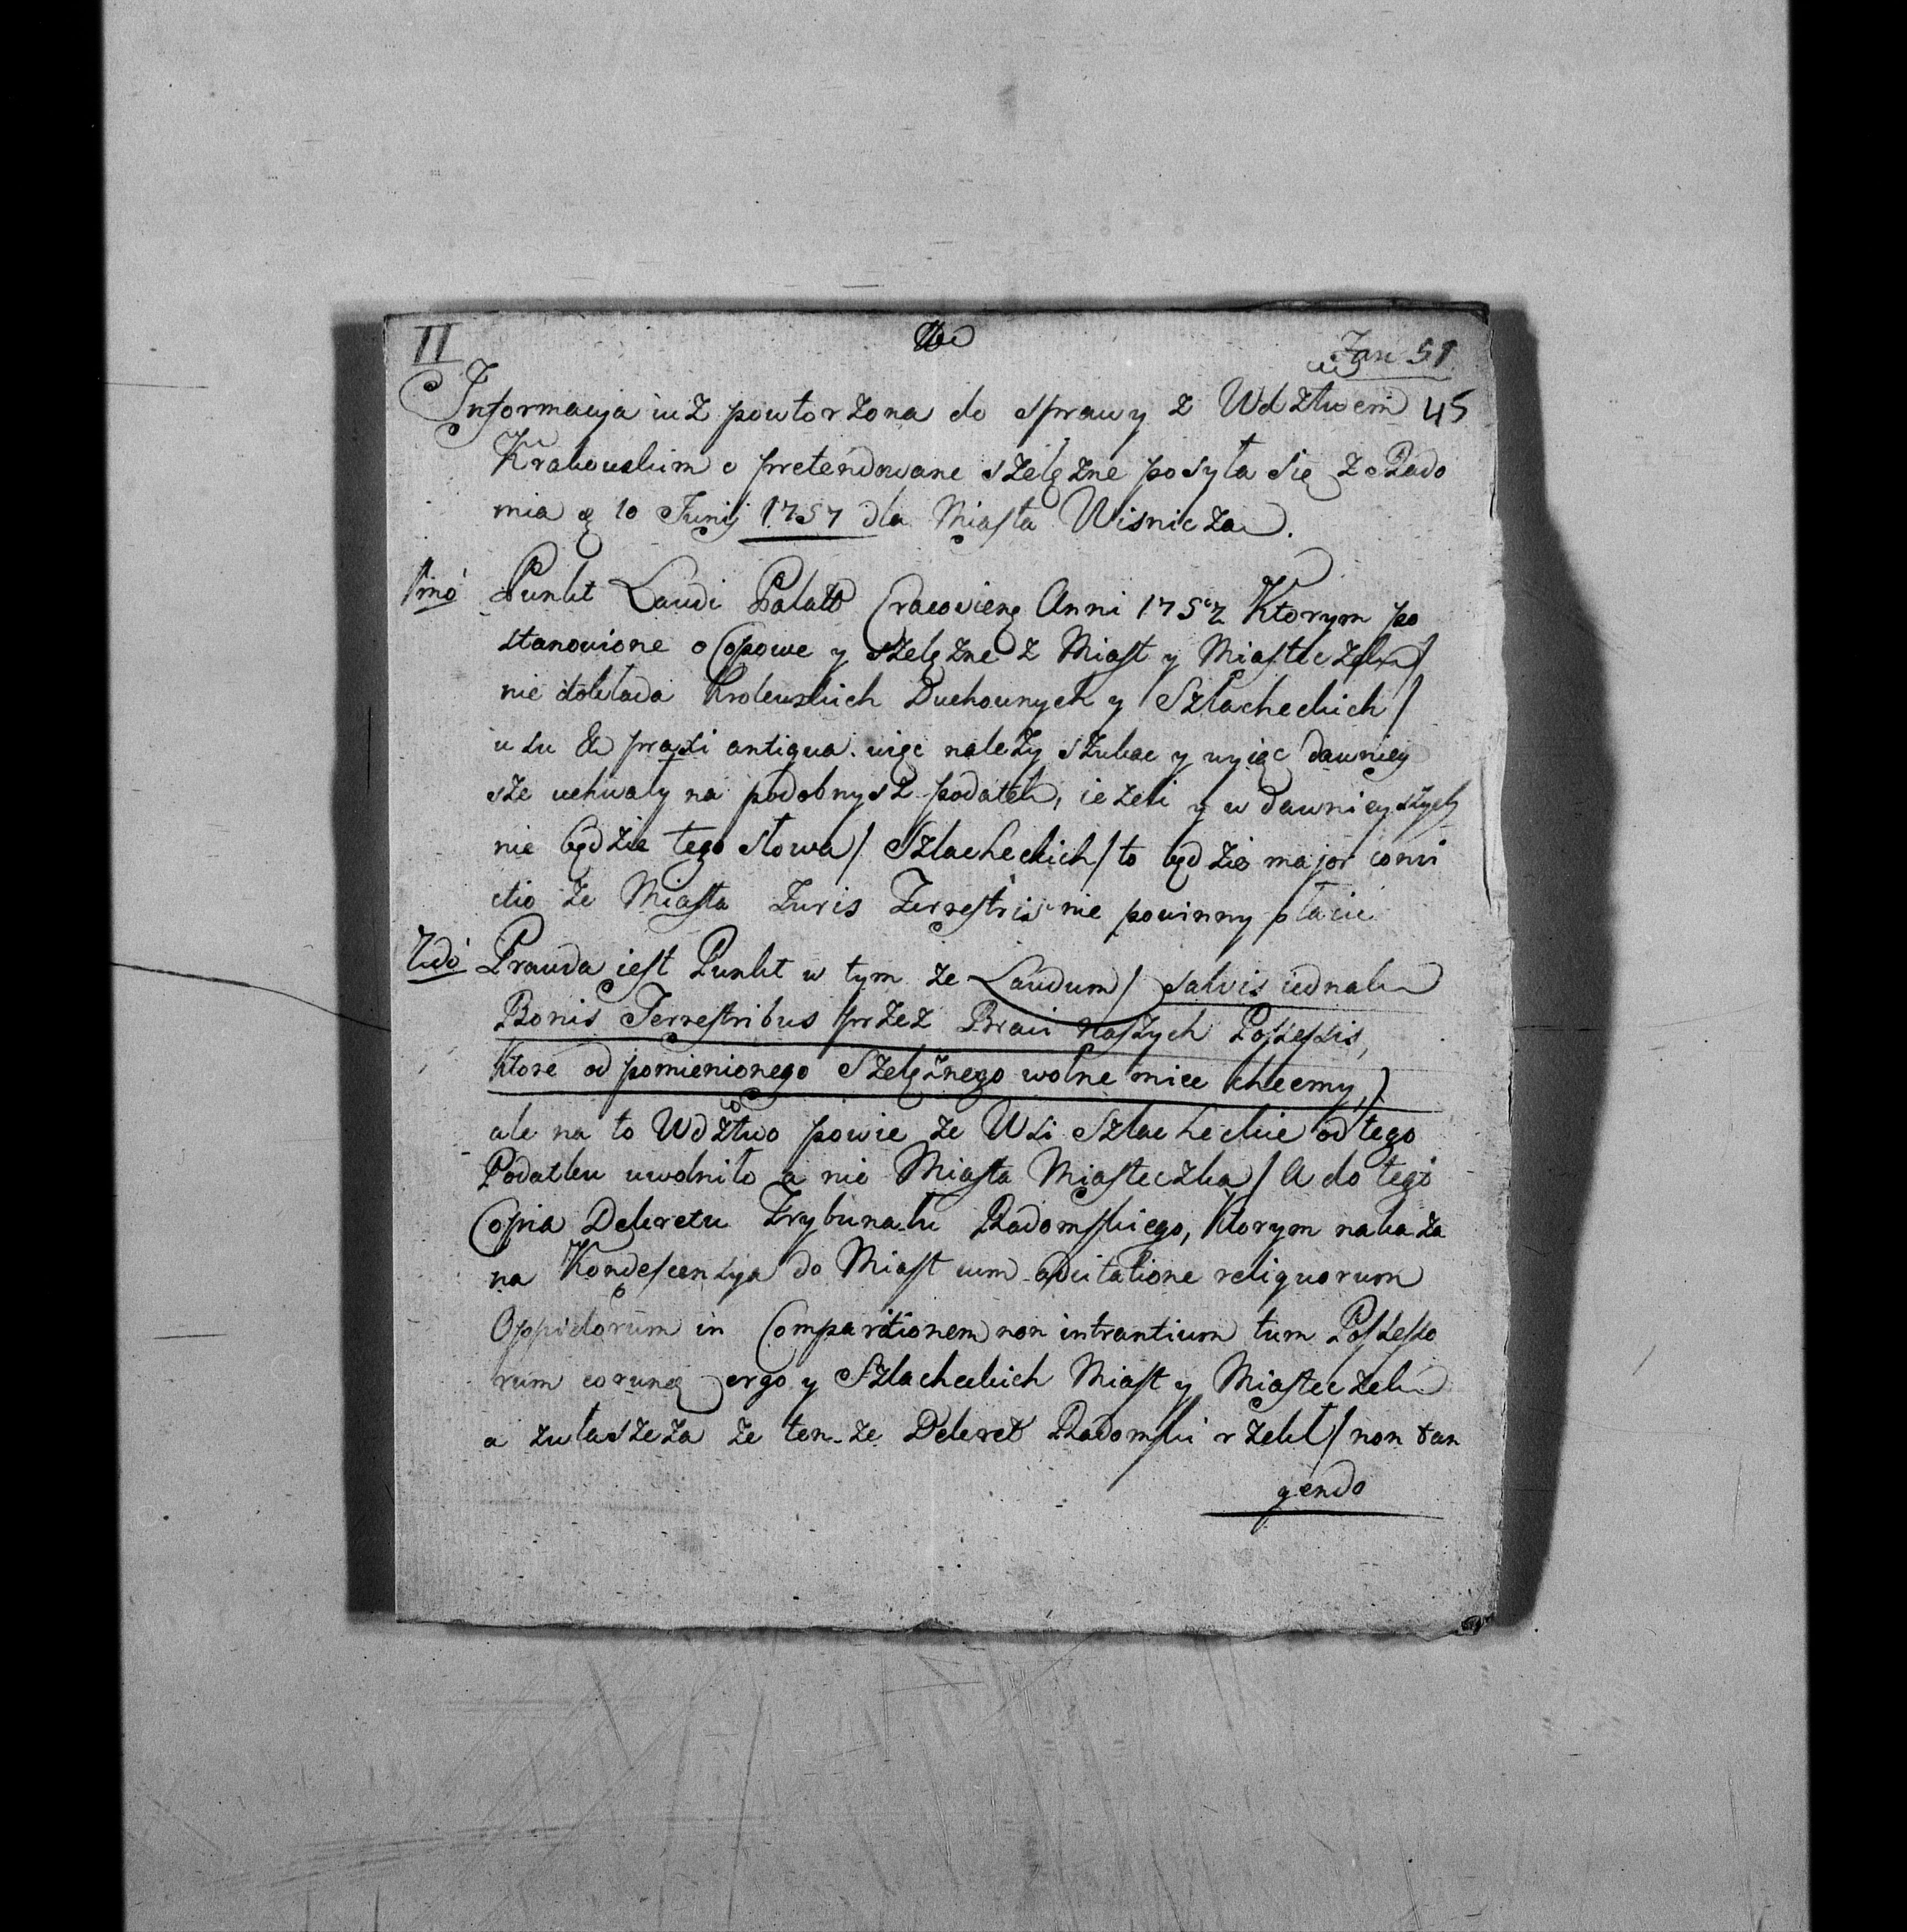 II
Jan 51
45
Informacya iuż powtorzona do sprawy z Wdztwem
Krakowskim o pretendowane szelęzne posyła się z Rado
mia 10 Junij 1757 dla Miasta Wisnicza.
1mo Punkt Laudi Palatt Cracovien Anni 1757 Ktorym po
stanowione Copowe y szelęzne z Miast y Miasteczek /
nie dokłada Krolewskich Duchownych y Szlacheckich /
usu & praxi antiqua. więc należy szukac y wyiąc dawniey
sze uchwały na podobnysz podatek, ieżeli y w dawnieyszych
nie będzie tego słowa / Szlacheckich / to będzie major convi
ctio że Miasta Juris Terrestris nie powinny płacic
2do Prawda iest Punkt w tym że Laudum / salvis iednak
Bonis Terrestribus przez Braci naszych Possessis,
Ktore od pomienionego Szelęznego wolne miec chcemy, /
ale na to Wdztwo powie że Wsi Szlacheckie od tego
Podatku uwolniło a nie Miasta Miasteczka / A do tego
Copia Dekretu Trybunału Radomskiego, Ktorym nakaza
na Kondescensya do Miast cum adcitatione reliquorum
Oppidorum in Comparitionem non intrantium tum Possesso
rum eorunq ergo y Szlacheckich Miast y Miasteczek
a zwłaszcza że ten-że Dekret Radomski rzekł / non tan
gendo